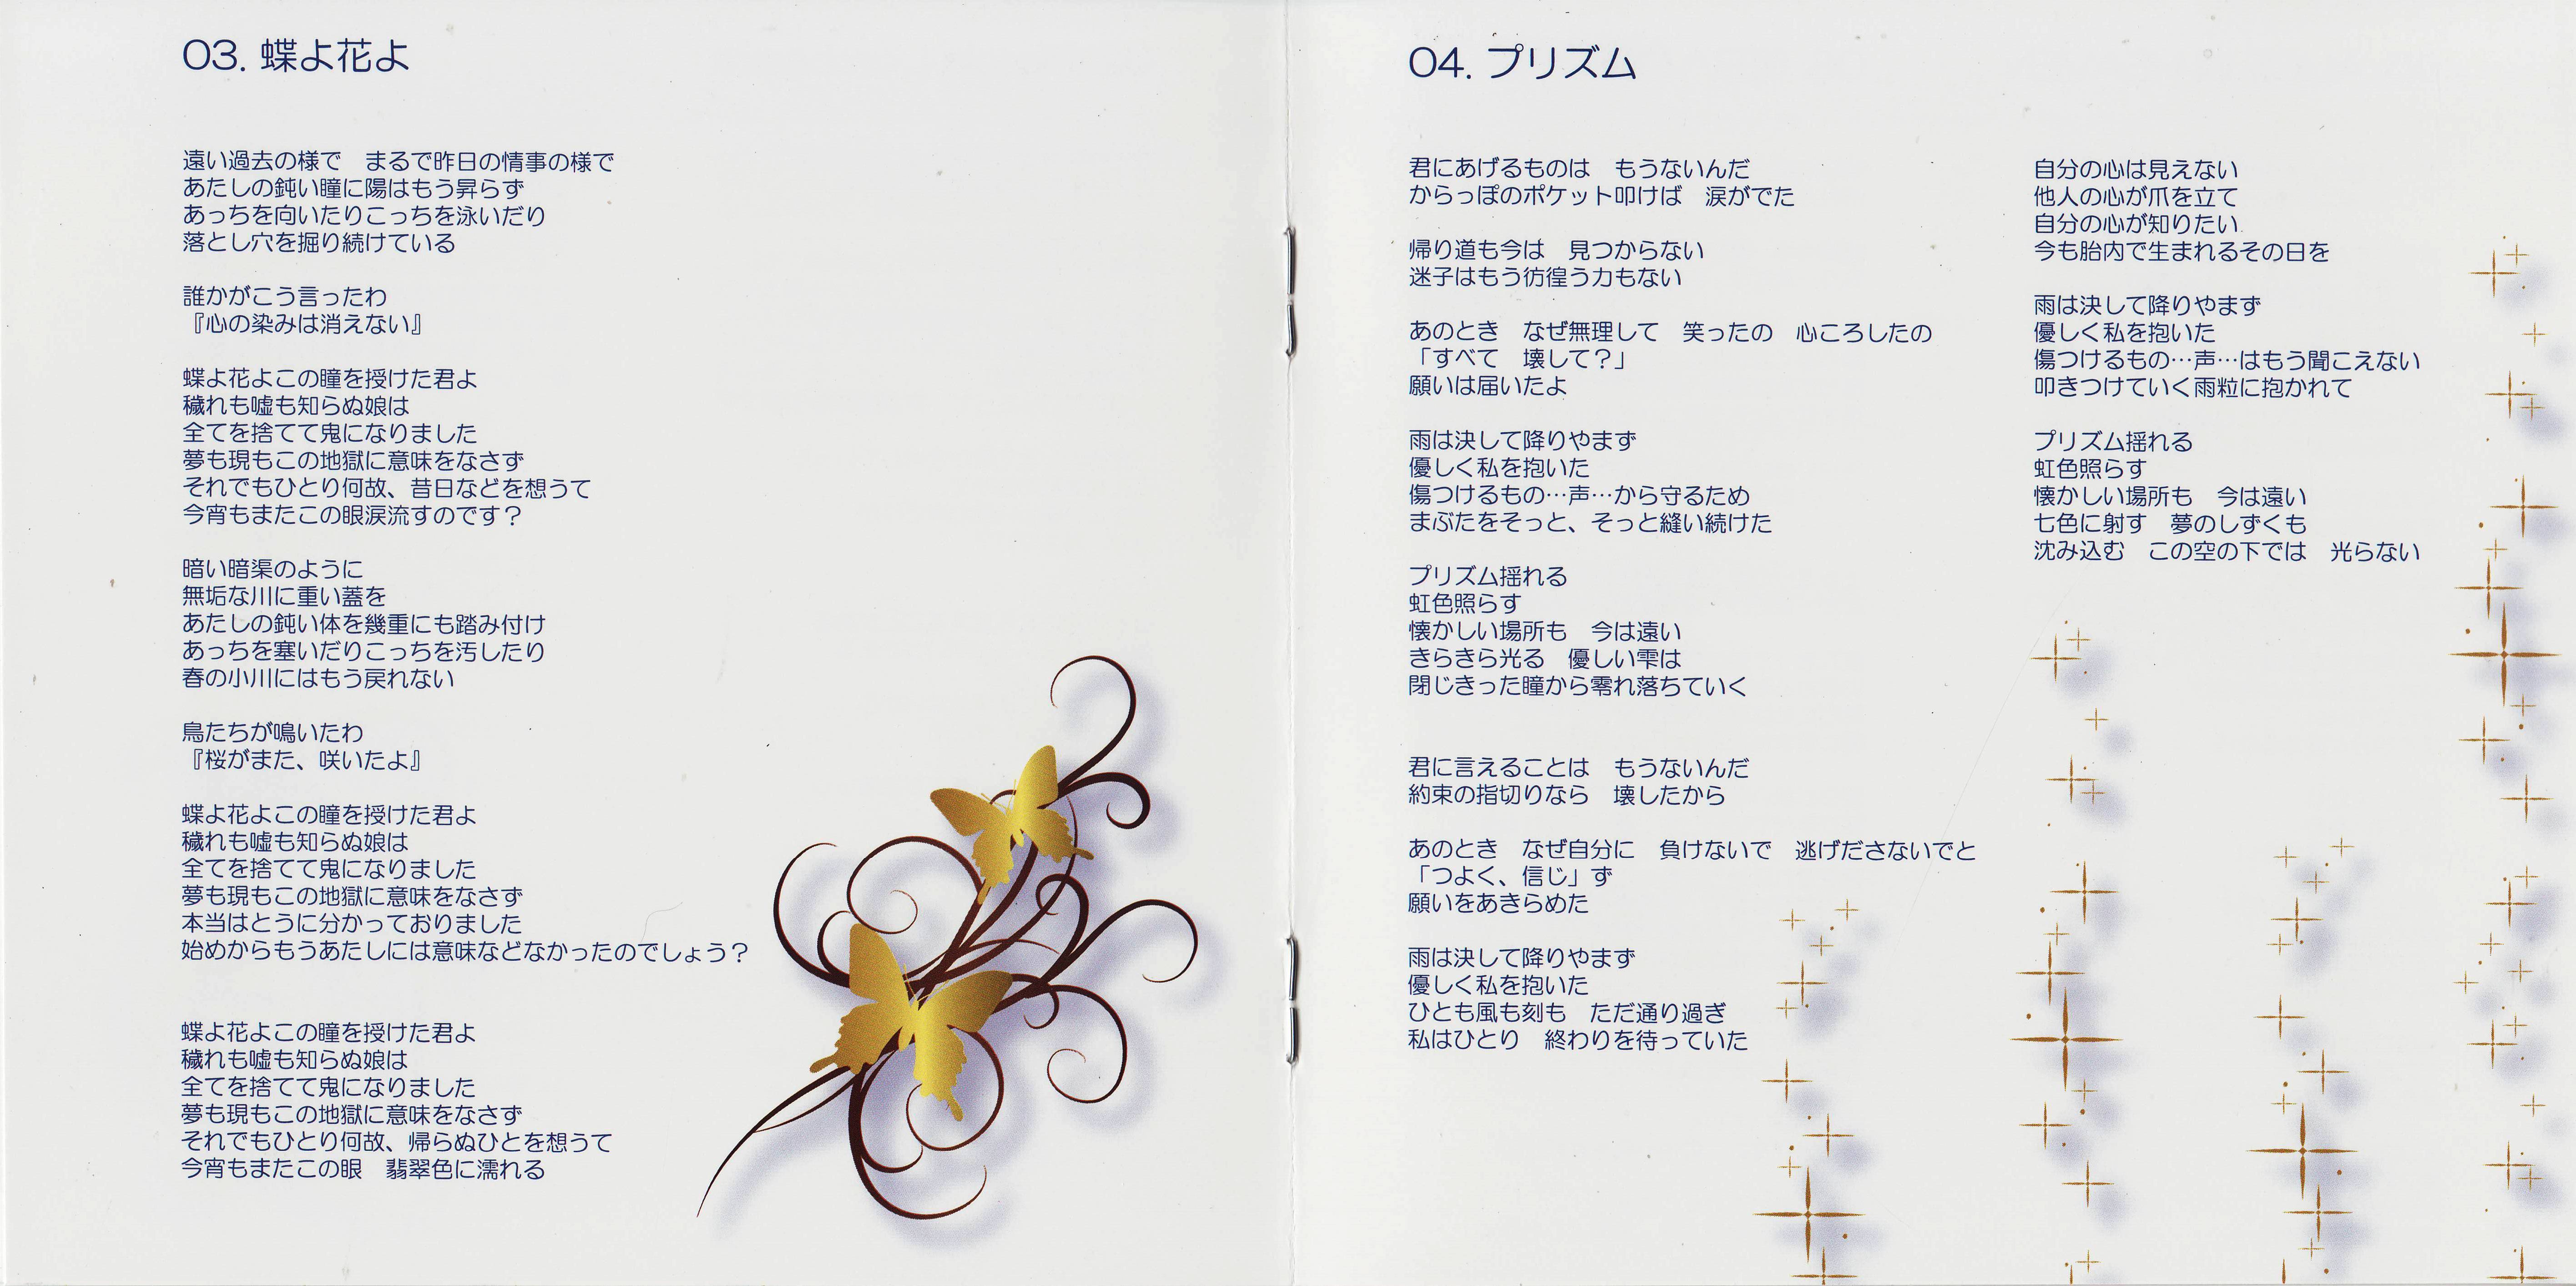 03. 蝶よ花よ
遠い過去の様で　まるで昨日の情事の様で
あたしの鈍い瞳に陽はもう昇らず
あっちを向いたりこっちを泳いだり
落とし穴を掘り続けている
誰かがこう言ったわ
『心の染みは消えない』
蝶よ花よこの瞳を授けた君よ
穢れも嘘も知らぬ娘は
全てを捨てて鬼になりました
夢も現もこの地獄に意味をなさず
それでもひとり何故、昔日などを想うて
今宵もまたこの眼涙流すのです？
暗い暗渠のように
無垢な川に重い蓋を
あたしの鈍い体を幾重にも踏み付け
あっちを塞いだりこっちを汚したり
春の小川にはもう戻れない
鳥たちが鳴いたわ
『桜がまた、咲いたよ』
蝶よ花よこの瞳を授けた君よ
穢れも嘘も知らぬ娘は
全てを捨てて鬼になりました
夢も現もこの地獄に意味をなさず
本当はとうに分かっておりました
始めからもうあたしには意味などなかったのでしょう？
蝶よ花よこの瞳を授けた君よ
穢れも嘘も知らぬ娘は
全てを捨てて鬼になりました
夢も現もこの地獄に意味をなさず
それでもひとり何故、帰らぬひとを想うて
今宵もまたこの眼　翡翠色に濡れる
04. プリズム
君にあげるものは　もうないんだ
からっぽのポケット叩けば　涙がでた
帰り道も今は　見つからない
迷子はもう彷徨う力もない
あのとき　なぜ無理して　笑ったの　心ころしたの
「すべて　壊して？」
願いは届いたよ
雨は決して降りやまず
優しく私を抱いた
傷つけるもの…声…から守るため
まぶたをそっと、そっと縫い続けた
プリズム揺れる
虹色照らす
懐かしい場所も　今は遠い
きらきら光る　優しい雫は
閉じきった瞳から零れ落ちていく
君に言えることは　もうないんだ
約束の指切りなら　壊したから
あのとき　なぜ自分に　負けないで　逃げださないでと
「つよく、信じ」ず
願いをあきらめた
雨は決して降りやまず
優しく私を抱いた
ひとも風も刻も　ただ通り過ぎ
私はひとり　終わりを待っていた
自分の心は見えない
他人の心が爪を立て
自分の心が知りたい
今も胎内で生まれるその日を
雨は決して降りやまず
優しく私を抱いた
傷つけるもの…声…はもう聞こえない
叩きつけていく雨粒に抱かれて
プリズム揺れる
虹色照らす
懐かしい場所も　今は遠い
七色に射す　夢のしずくも
沈み込む　この空の下では　光らない